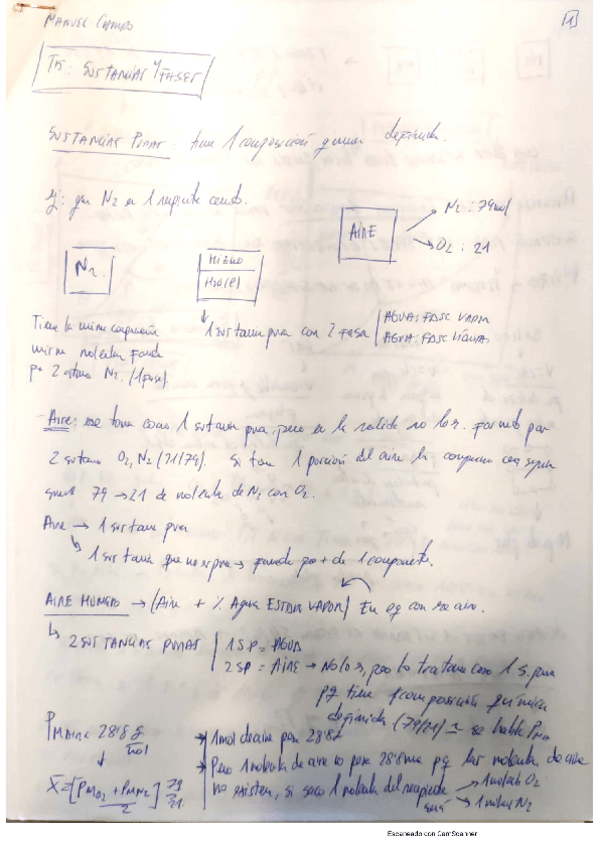 MANUEL CAMPOS
[1]
T5: SUSTANCIAS Y FASES
SUSTANCIAS PURAS: tiene 1 composición química definida.
Ej: gas N2 en 1 recipiente cerrado.
AIRE
N2: 79 mol
O2: 21
N2
HIELO
H2O(l)
Tiene la misma composición
misma molécula formada
por 2 átomos N2. (1 fase).
1 sustancia pura con 2 fases
AGUA: FASE VAPOR
AGUA: FASE LÍQUIDA
- Aire: se toma como 1 sustancia pura, pero en la realidad no lo es. formado por
2 sustancias O2, N2 (21/79). Si tomo 1 porción del aire la composición sigue
79 → 21 de moléculas de N2 con O2.
Aire → 1 sustancia pura
1 sustancia que no es pura → formada por + de 1 componente.
AIRE HÚMEDO → (Aire + % Agua ESTADO VAPOR) En eq con ese aire.
2 SUSTANCIAS PURAS
1 SP = AGUA
2 SP = AIRE → No lo es, pero lo tratamos como 1 s. pura
pq tiene 1 composición química
definida (79/21) ≃ se habla PM
PM Aire 28'8 g/mol
1 mol de aire pesa 28'8 g
Pero 1 molécula de aire no pesa 28'8 pq las moléculas de aire
no existen, si saco 1 molécula del recipiente será
1 molécula O2
1 molécula N2
X̄ = [PMO2 + PMN2 / 2] 79/21
Escaneado con CamScanner